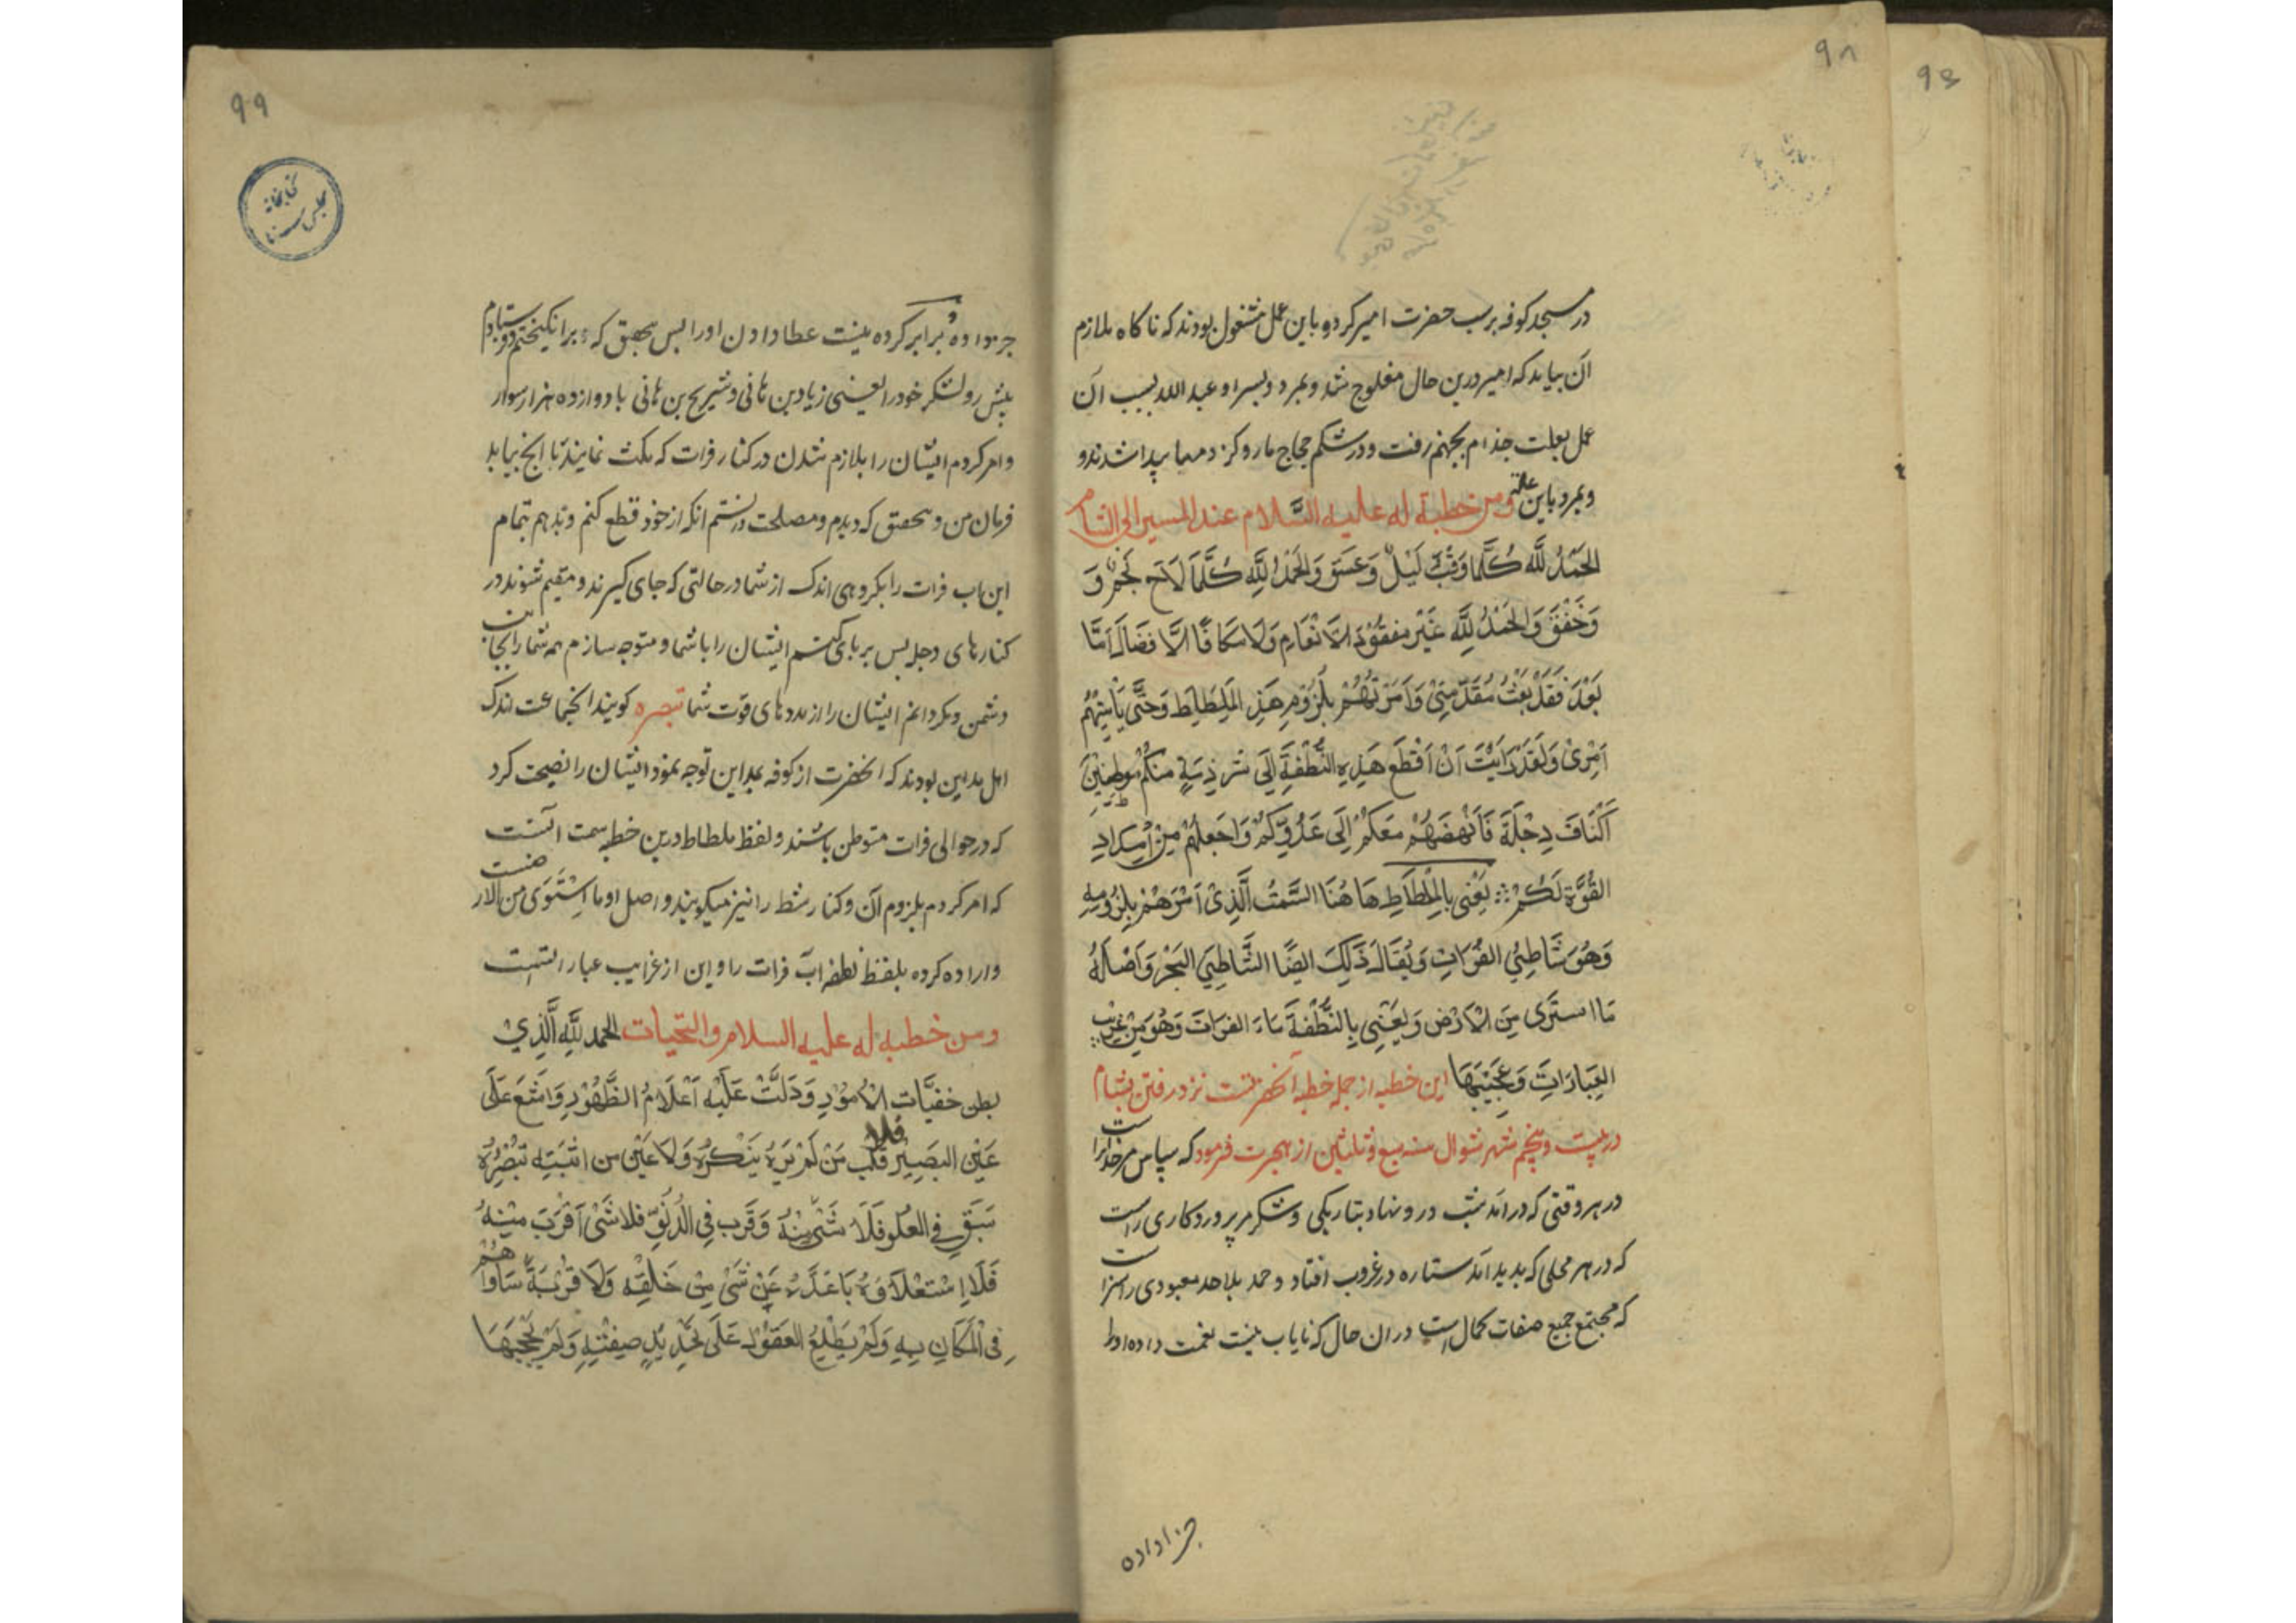 ۹۶
۹۸
در مسجد کوفه بر سب حضرت امیر کرد و باین عمل مشغول بودند که ناکاه ملازم
آن بیامد که امیر درین حال مفلوج شد و بمرد و پسر او عبد الله بسبب آن
عمل بعلت جذام بجهنم رفت و در شکم حجاج مار و کژدمها پیدا شدند و
و بمرد باین علت ومن خطبة له علیه السَّلام عند المسیر الی الشام
الحَمْدُ لِلَّهِ كُلَّمَا وَقَبَ لَيْلٌ وَغَسَقَ وَالحَمْدُ لِلَّهِ كُلَّمَا لَاحَ نَجْمٌ وَ
وَخَفَقَ وَالحَمْدُ لِلَّهِ غَيْرَ مفقُوْدَ الاَنْعَامِ وَلَا مكَافًا الاَفضَال اَمَّا
بَعْدَ فَقَدْ بَعَثْتُ مُقَدّمَتِىْ وَاَمَرْتُهُمْ بِلُزُوْمِ هَذِ المِلطَاطِ وَحَتَّى يَأتِيَهُمْ
اَمْرِىْ وَلَقَدْ رَايْتَ اَنْ اَقْطَعَ هَذِهِ النُّطْفَةَ اِلَى شرذِمَةٍ منكُمْ مُوَطِنِيْنَ
اَكْنَافَ دِجْلَةَ فَاَنْهِضَهُمْ مَعَكُمْ اِلَى عَدُوِّكُمْ وَاَجعَلهُمْ مِنْ اَمْدَادِ
القُوَّةِ لَكُمْ ؞ يَعْنِى بِالمِلْطَاطِ هَا هُنَا السَّمْتُ الَّذِىْ اَمَرَهُمْ بِلُزُومِهِ
وَهُوَ شَاطِئُ الفُرَاتِ وَيُقَالُ ذَلِكَ ايضًا الشَّاطِئِ البَحْرِ وَاَصْلُهُ
مَا استَوَى مِنَ الْاَرْضِ وَيَعْنِى بِالنُّطْفَةِ مَاءَ الفراتَ وَهُوَ مِنْ غَرِيْب
العِبَارَاتِ وَعَجِيْبِهَا این خطبه از جمله خطبه آنحضرتست نزد رفتن بشام
در بیست و پنجم شهر شوال سنه سبع و ثلاثین از هجرت فرمود که سپاس مر خدایرا ست
در هر وقتی که در آمد شب در و نهاد بتاریکی و شکر مر پروردکاری راست
که در هر محلی که بدید آمد ستاره در غروب افتاد و حمد بلا حد معبودی را سزا ست
که مجتمع جمیع صفات کمال است در آن حال که نایاب نیست نعمت داده او را
جزا داده
۹۹
کتابخانه
مجلس سنا
جزا داده برابر کرده نیست عطا دادن او را پس بتحقیق که برانکیختم و فرستادم
پیش رو لشکر خود را یعنی زیاد بن هانی و شریح بن هانی با دوازده هزار سوار
و امر کردم ایشان را بلازم شدن در کنار فرات که مکث نمایند تا انج بیابد
فرمان من و بتحقیق که دیدم و مصلحت دانستم انکه از خود قطع کنم و بدهم تمام
این اب فرات را بکروهی اندک از شما در حالتی که جای کیرند و مقیم شوند در
کنارهای دجله پس بر پای کنم ایشان را با شما و متوجه سازم همه شما را بجانب
دشمن و بکردانم ایشان را از مددهای قوت شما تبصره کویند انجماعت اندک
اهل مداین بودند که آنحضرت از کوفه بمداین توجه نمود ایشان را نصیحت کرد
که در حوالی فرات متوطن باشند و لفظ ملطاط درین خطبه سمت آنست
که امر کردم بلزوم آن و کنار شط را نیز میکویند و اصل او ما اِسْتَوَى من الارضست
و اراده کرده بلفظ نطفه اب فرات را و این از غرایب عباراتست
ومن خطبه له علیه السلام والتحیات الحمد لِلَّهِ الَّذِيْ
بطن خفيَّات الْاُمُوْرِ وَدَلَّتْ عَلَيْهِ اَعْلَامُ الظُّهُوْرِ وَامْتَنَعَ عَلَى
عَيْنِ البَصِيْرِ فلا قلْب مَنْ لَمْ يَرَهُ يَنْكرُهُ وَلَا عَيْن من اثبَتَهِ تبْصِرُهُ
سَبَقَ فِي العُلو فَلَا شَىْ مِنْهُ وَقَرَب فِي الدُّنُوِّ فلا شَىْ اَقْرَبَ مِنْهُ
فَلَا اِسْتعْلَاؤُهُ بَاعَدَهُ عَنْ شَىْ مِنْ خَلقِهِ وَلَا قرْبهُ سَاوَاهُمْ
فِى الْمَكَانِ بِهِ وَلَمْ يطلِعُ العقُوْلَ عَلَى تَحْدِيْدِ صِفَتِهِ وَلَمْ يَحْجُبْهَا